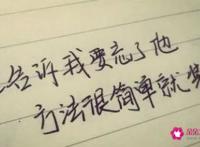 告诉我要忘了他
方法很简单就